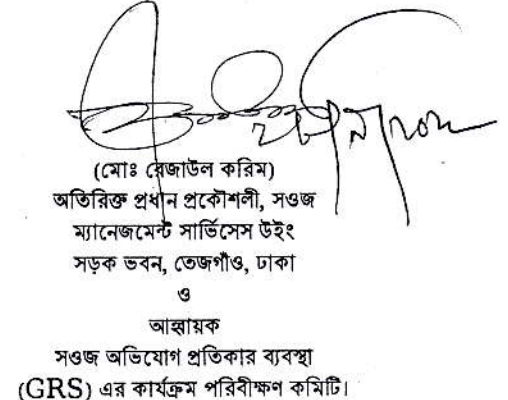 (মোঃ রেজাউল করিম)
অতিরিক্ত প্রধান প্রকৌশলী, সওজ
ম্যানেজমেন্ট সার্ভিসেস উইং
সড়ক ভবন, তেজগাঁও, ঢাকা
ও
আহ্বায়ক
সওজ অভিযোগ প্রতিকার ব্যবস্থা
(GRS) এর কার্যক্রম পরিবীক্ষণ কমিটি।